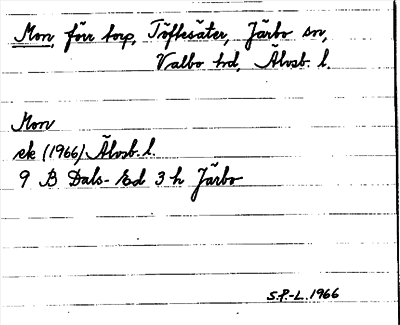 Mon, förr torp, Töftesäter, Järbo sn,
Valbo hd, Älvsb. l.
Mon
ek (1966) Älvsb. l.
9 B Dals-Ed 3 h Järbo
S.F.-L. 1966